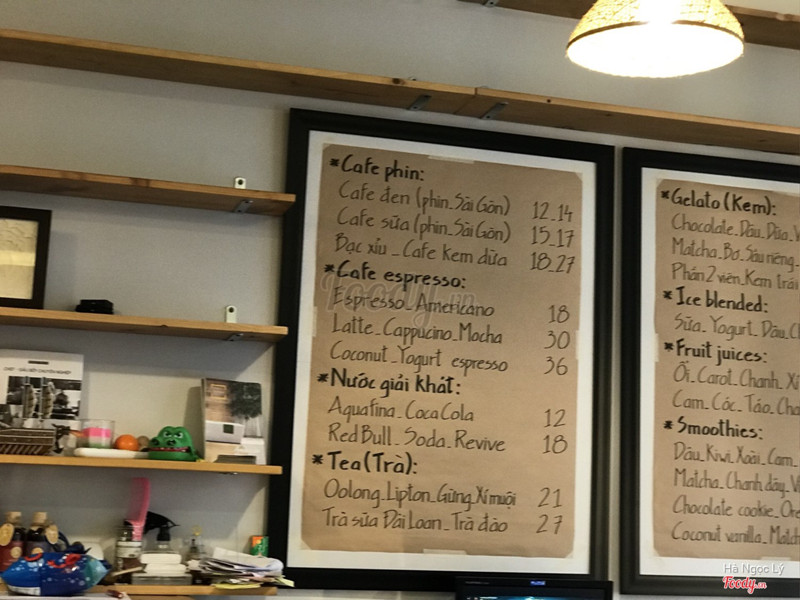 *Cafe phin:
Cafe đen (phin_Sài Gòn) 12_14
Cafe sữa (phin_Sài Gòn) 15_17
Bạc xỉu_Cafe kem dừa 18_27
*Cafe espresso:
Espresso_Americano 18
Latte_Cappucino_Mocha 30
Coconut_Yogurt espresso 36
*Nước giải khát:
Aquafina_CocaCola 12
RedBull_Soda_Revive 18
*Tea (Trà):
Oolong_Lipton_Gừng_Xí muội 21
Trà sữa Đài Loan_Trà đào 27
*Gelato (Kem):
Chocolate_Dâu_Dừa_V
Matcha_Bơ_Sầu riêng_
Phần 2 viên_Kem trái
*Ice blended:
Sữa_Yogurt_Dâu_C
*Fruit juices:
Ổi_Carot_Chanh_Xí
Cam_Cóc_Táo_Cha
*Smoothies:
Dâu_Kiwi_Xoài_Cam_
Matcha_Chanh dây_V
Chocolate cookie_Ore
Coconut vanilla_Match
Foody.vn
Hà Ngọc Lý
Foody.vn